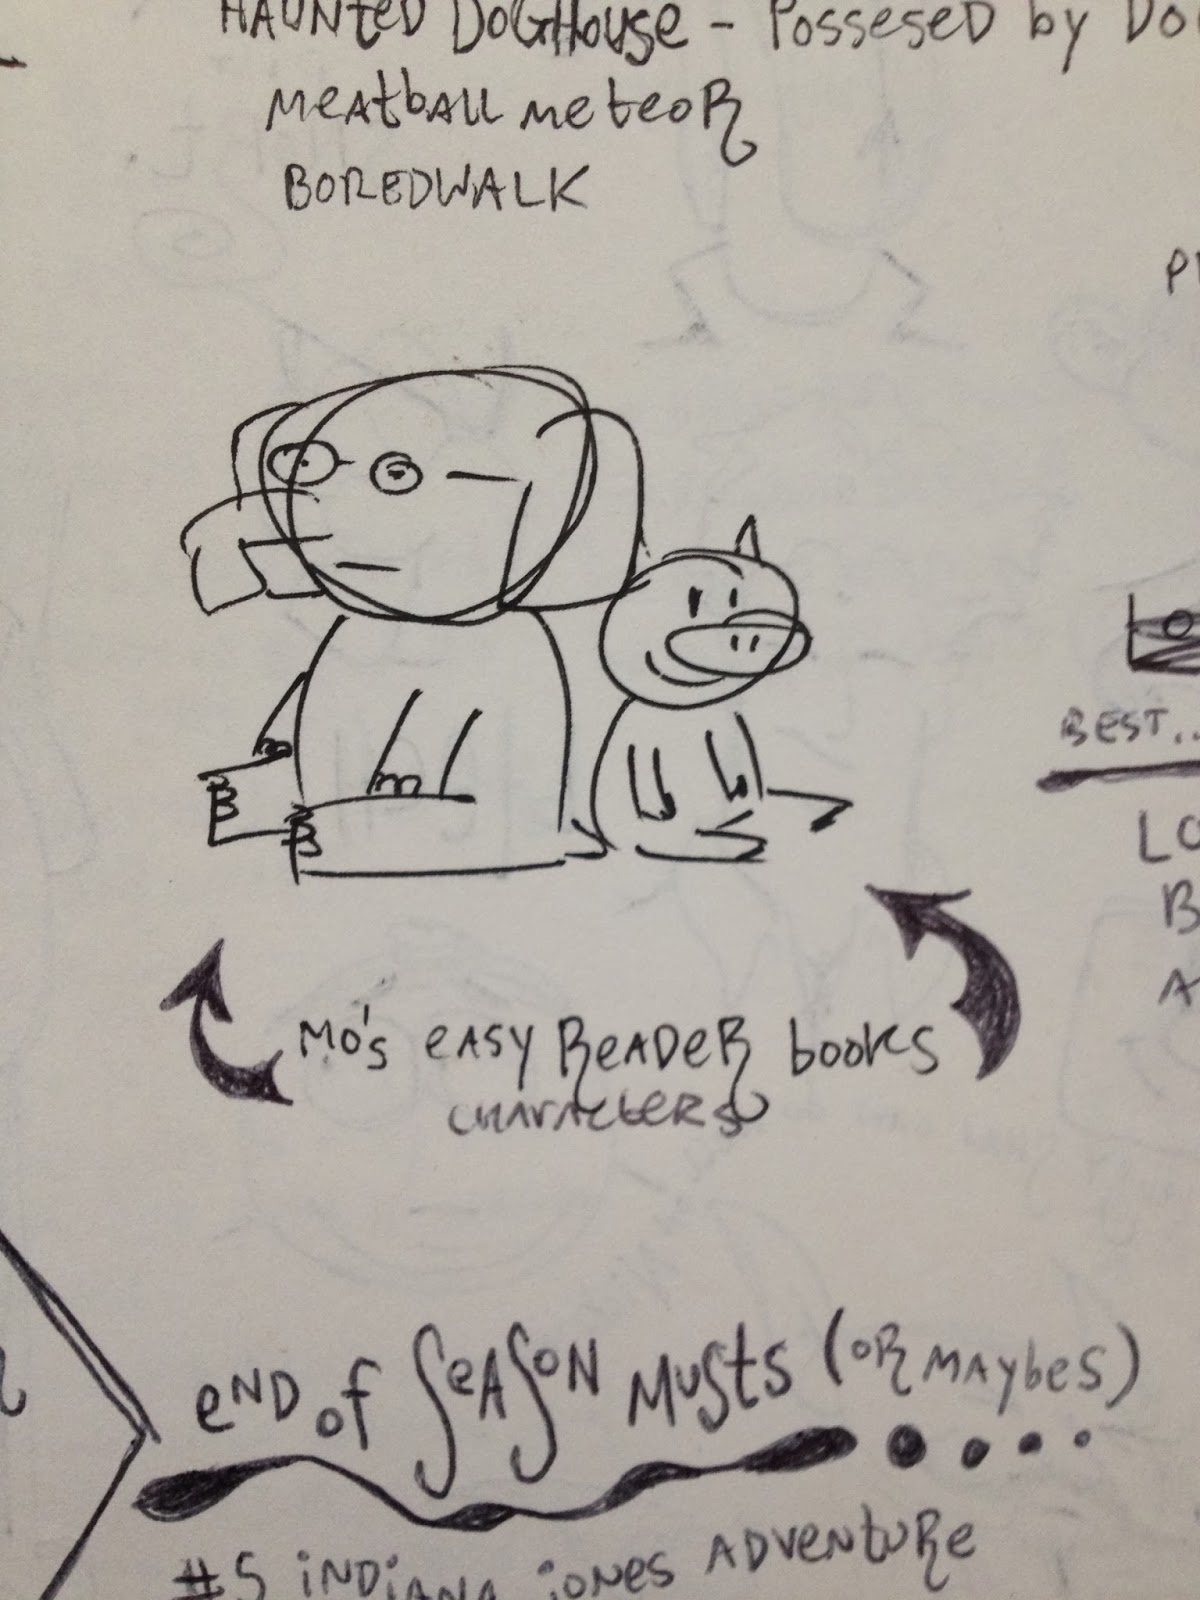 HAUNTED DOGHOUSE - POSSESED by
MEATBALL METEOR
BOREDWALK
BEST...
MO'S EASY READER books
CHARACTERS
END of SEASON MUSTS (OR MAYBES)
#5 INDIANA JONES ADVENTURE